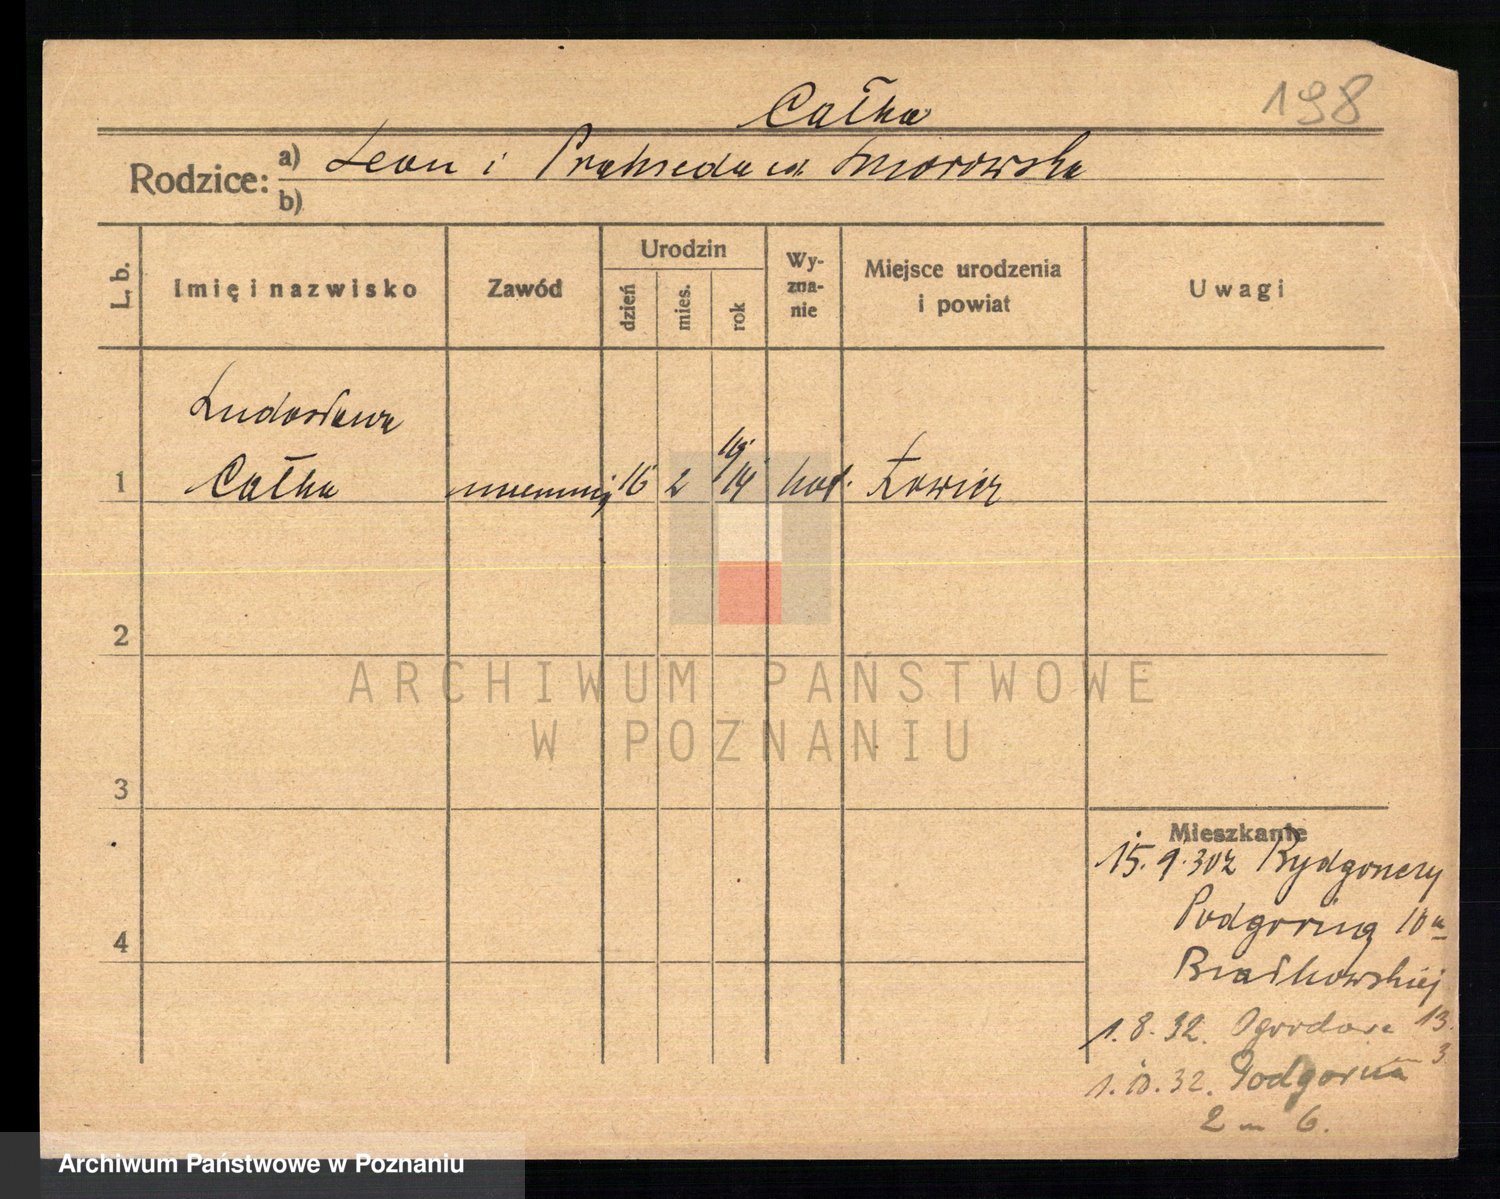 198
Całka
Rodzice: a) Leon i Prakseda
b)
L. b.
Imię i nazwisko
Zawód
Urodzin
dzień
mies.
rok
Wy-
zna-
nie
Miejsce urodzenia
i powiat
Uwagi
Ludosława
1 Całka 16 2 19/14 kat. Łowicz
2
3
4
ARCHIWUM PAŃSTWOWE
W POZNANIU
Mieszkanie
15. 9. 30 z Bydgoszczy
Podgórna 10
Białkowskiej
1. 8. 32. Ogrodowa 13.
m 3
1. 10. 32. Podgórna
2 m 6.
Archiwum Państwowe w Poznaniu